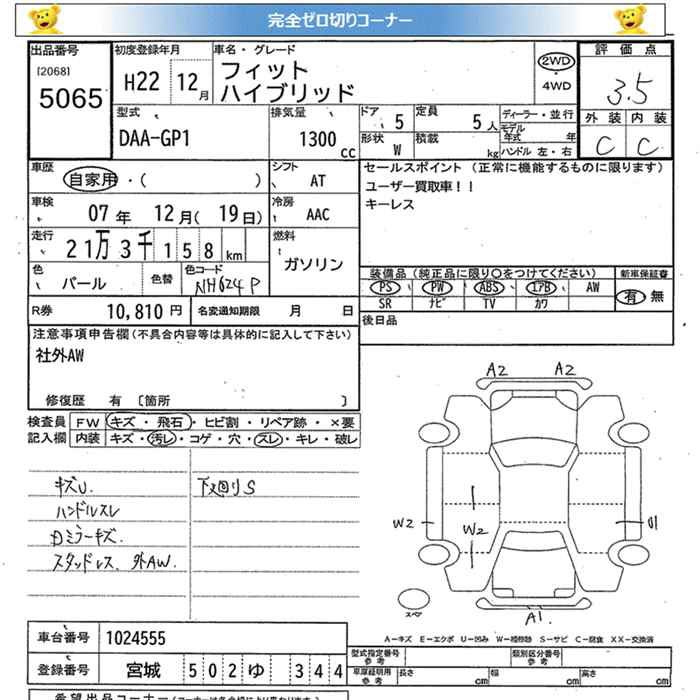 完全ゼロ切りコーナー
出品番号 初度登録年月 車名・グレード 評価点
[2068] フィット 2WD
5065 H22 12月 ハイブリッド ・4WD 3.5
型式 排気量 ドア 5 定員 5人 ディーラー・並行 外装 内装
DAA-GP1 1300cc 形状 W 積載 kg モデル年式 年 C C
ハンドル 左・右
車歴 自家用・( ) シフト AT セールスポイント (正常に機能するものに限ります)
車検 07年 12月( 19日) 冷房 AAC ユーザー買取車!!
キーレス
走行 21万3千158km 燃料 ガソリン
色 パール 色替 色コード NH624P 装備品(純正品に限り○をつけてください) 新車保証書
PS PW ABS エアB AW 有・無
SR ナビ TV カワ
R券 10,810円 名変通知期限 月 日 後日品
注意事項申告欄(不具合内容等は具体的に記入して下さい)
社外AW
修復歴 有 〔箇所 〕
検査員 FW キズ・飛石・ヒビ割・リペア跡・×要
記入欄 内装 キズ・汚レ・コゲ・穴・スレ・キレ・破レ
A2 A2
キズU. 下廻りS
ハンドルスレ
ミラーキズ
スタッドレス、外AW.
W2 W2
スペア
A1
A-キズ E-エクボ U-凹み W-補修跡 S-サビ C-腐食 XX-交換済
車台番号 1024555
型式指定番号 参考 類別区分番号 参考
登録番号 宮城 502 ゆ 344 車庫証明用 参考 長さ cm 幅 cm 高さ cm
希望出品コーナー